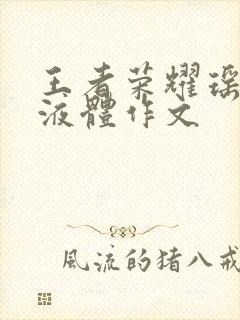 王者荣耀瑶
液體作文
風流的猪八戒